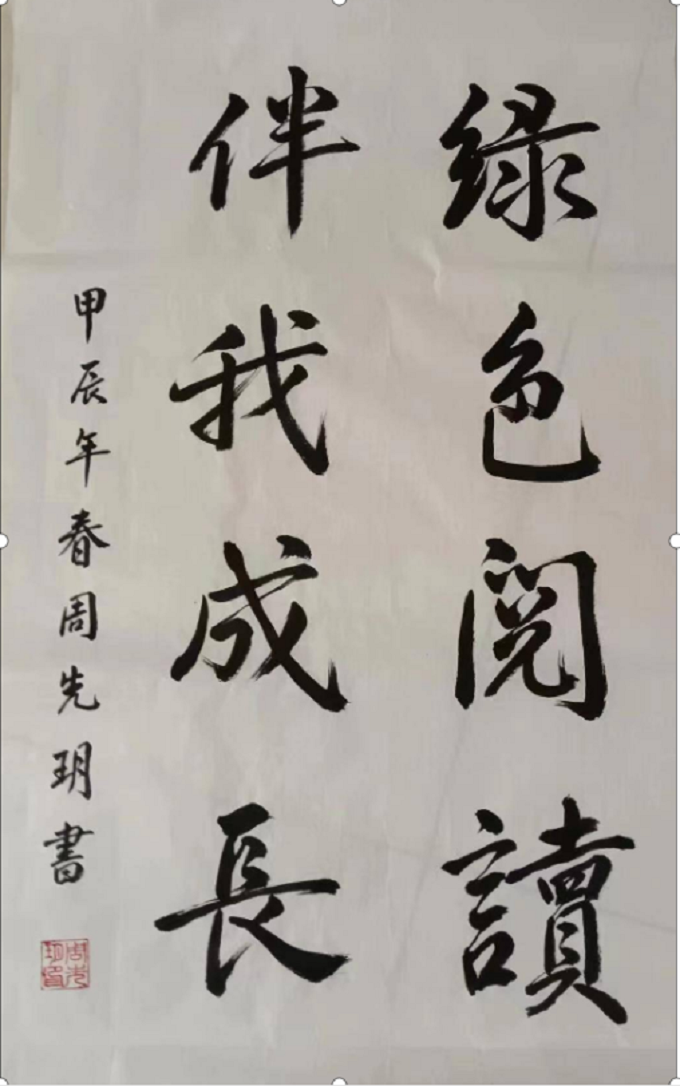 绿色阅讀
伴我成長
甲辰年春周先玥書